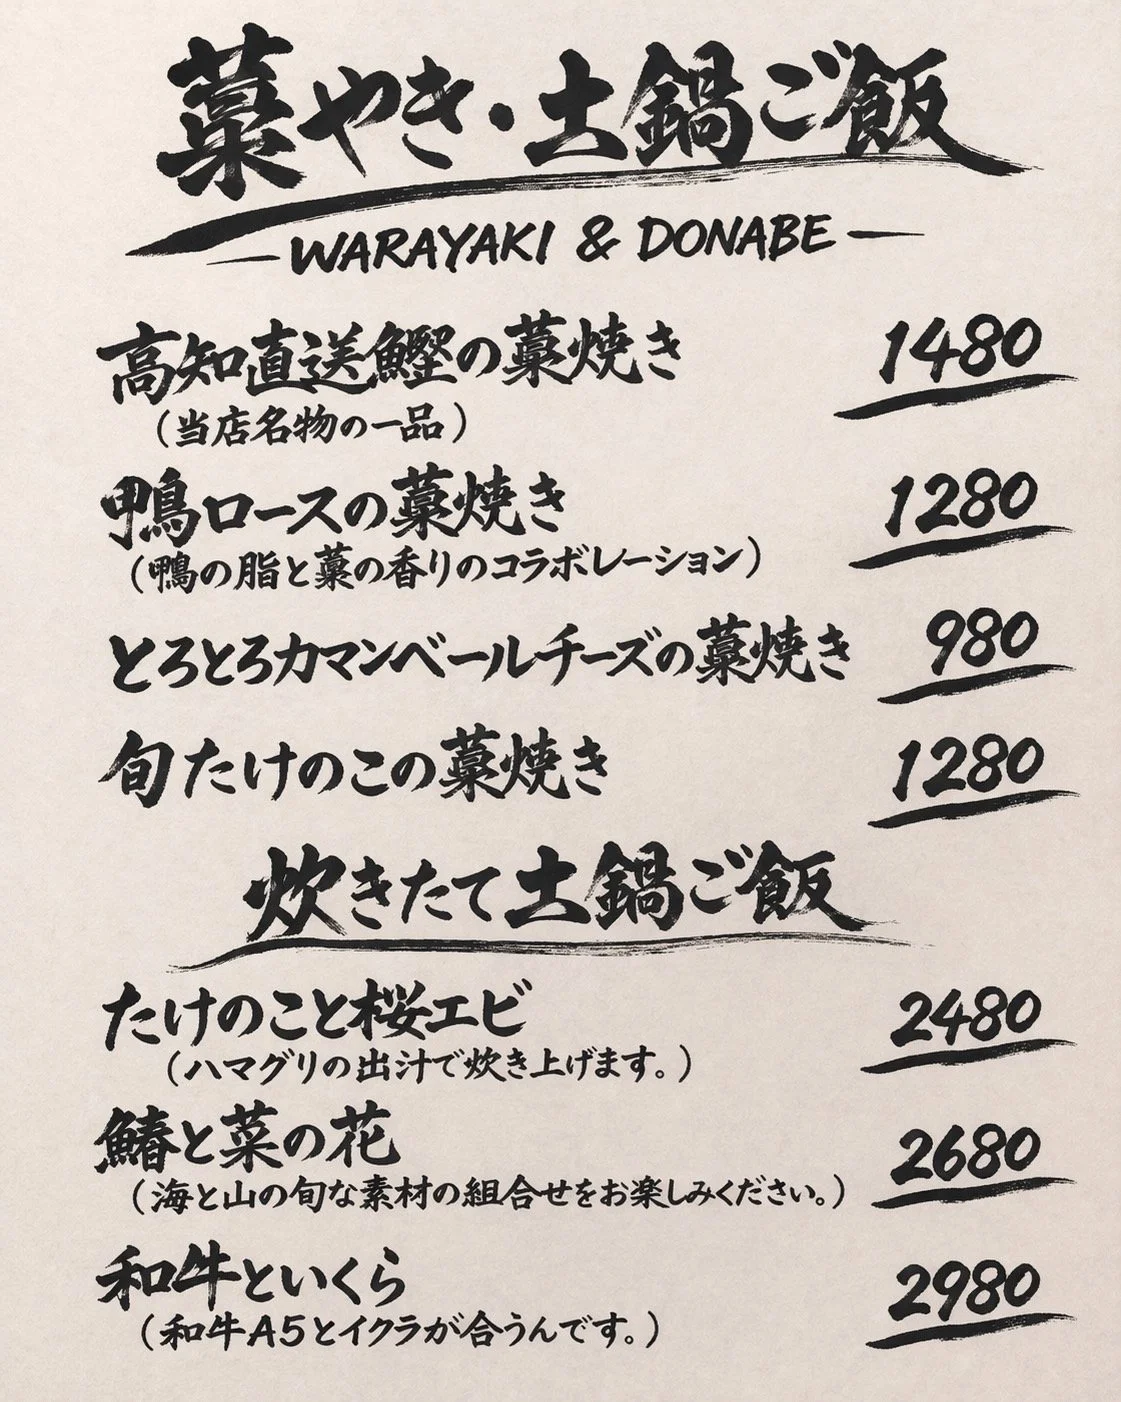 藁やき・土鍋ご飯
WARAYAKI & DONABE
高知直送鰹の藁焼き 1480
(当店名物の一品)
鴨ロースの藁焼き 1280
(鴨の脂と藁の香りのコラボレーション)
とろとろカマンベールチーズの藁焼き 980
旬たけのこの藁焼き 1280
炊きたて土鍋ご飯
たけのこと桜エビ 2480
(ハマグリの出汁で炊き上げます。)
鰆と菜の花 2680
(海と山の旬な素材の組合せをお楽しみください。)
和牛といくら 2980
(和牛A5とイクラが合うんです。)